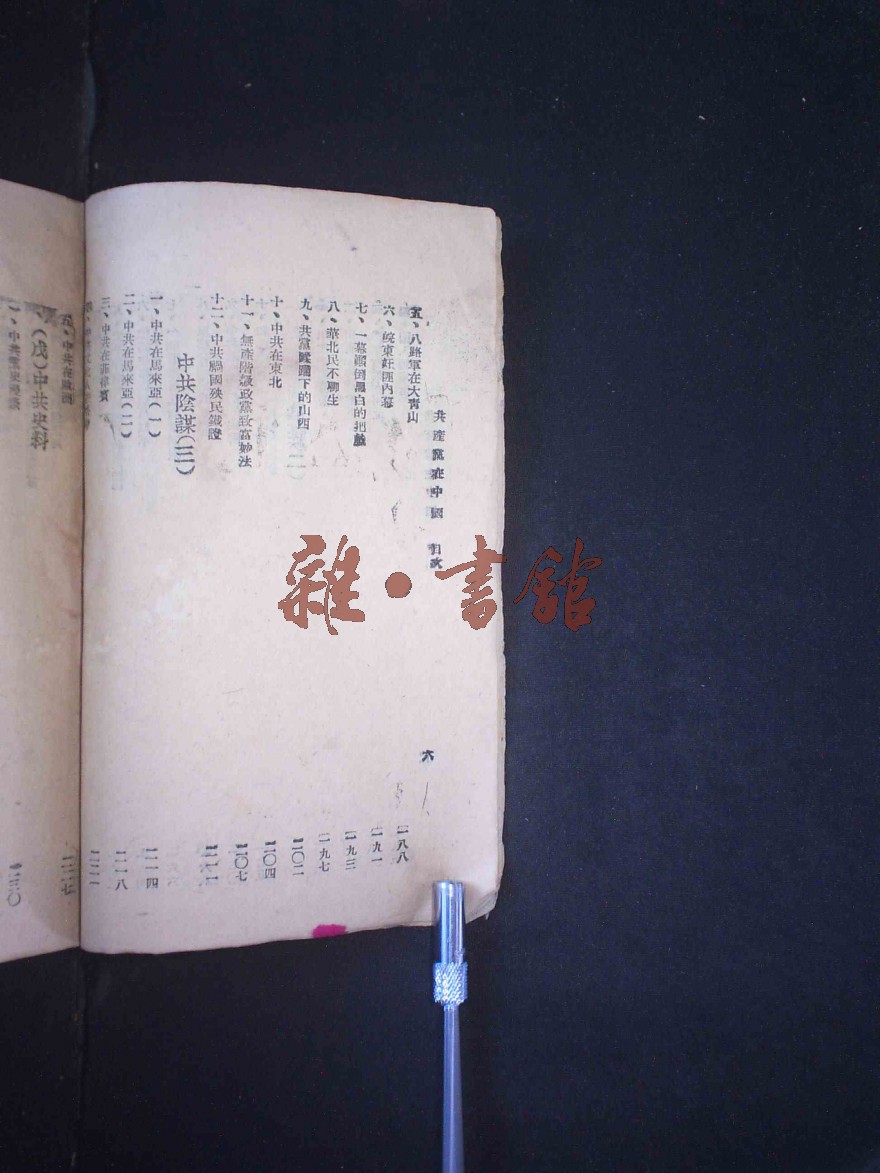 共產黨在中國 目次
六
五、八路軍在大青山 一八八
六、皖東 內幕 一九一
七、一幕顛倒黑白的把戲 一九三
八、華北民不聊生 一九七
九、共黨蹂躪下的山西 二〇二
十、中共在東北 二〇四
十一、無產階級政黨致富妙法 二〇七
十二、中共禍國殃民鐵證
中共陰謀(三)
一、中共在馬來亞(一) 二一四
二、中共在馬來亞(二) 二一八
三、中共在菲律賓
五、中共在
(戊)中共史料
一、中共 二三〇
雜·書館